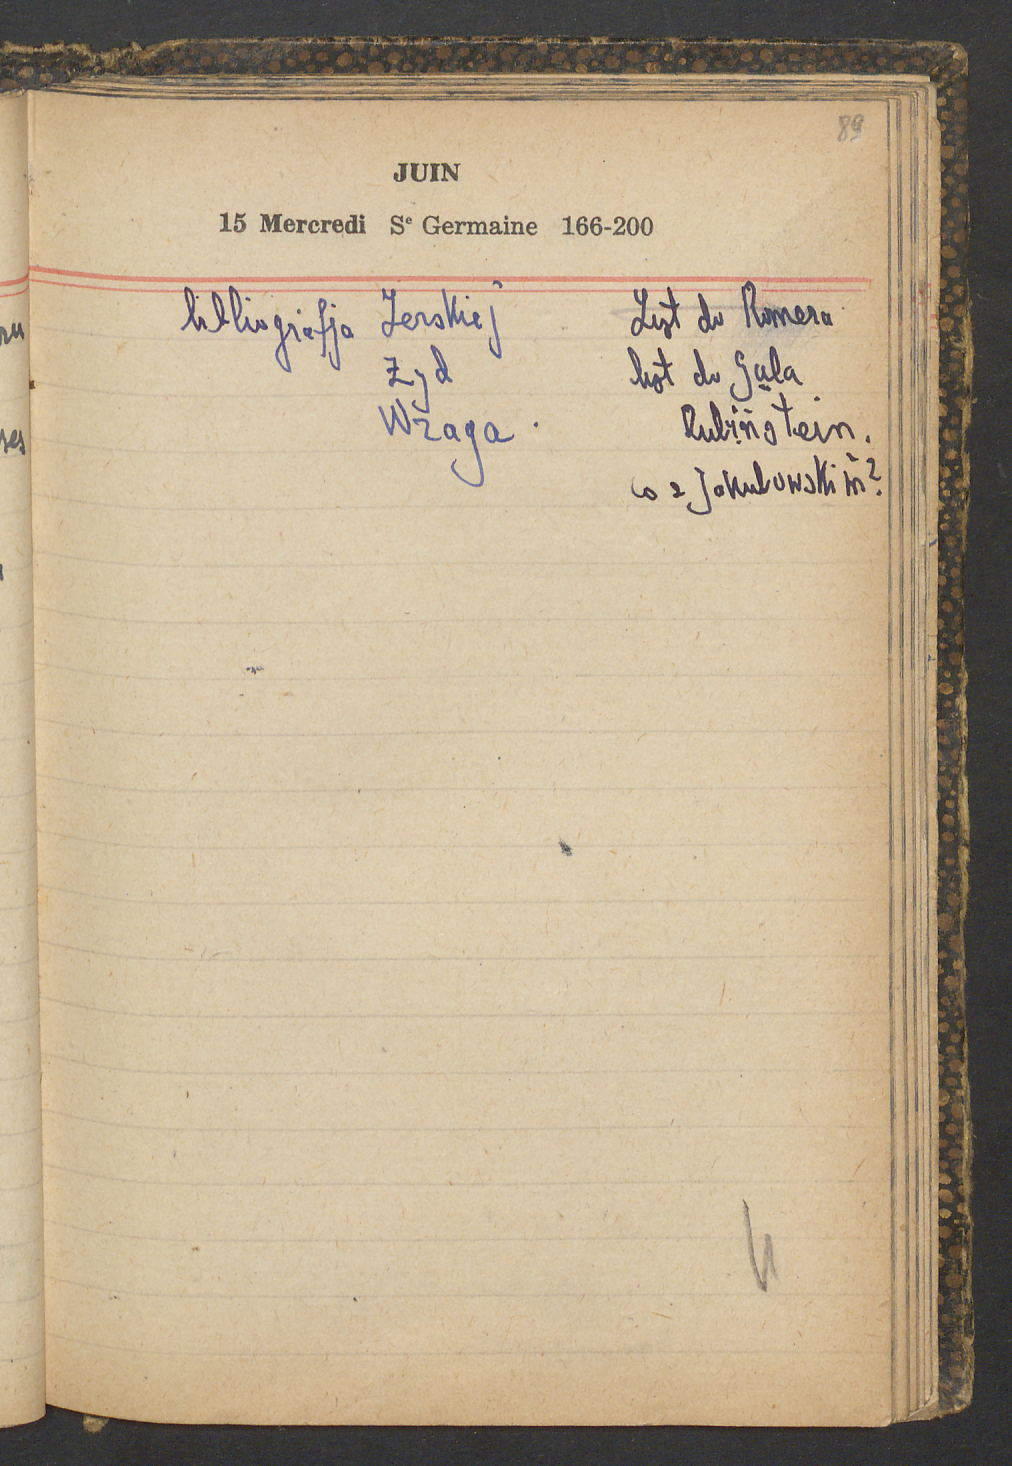 89
JUIN
15 Mercredi Se Germaine 166-200
bibliografja Zerskiej
Żyd
Wraga.
List do Romera
list do Gala
Rubinstein.
co z Jakubowskim?